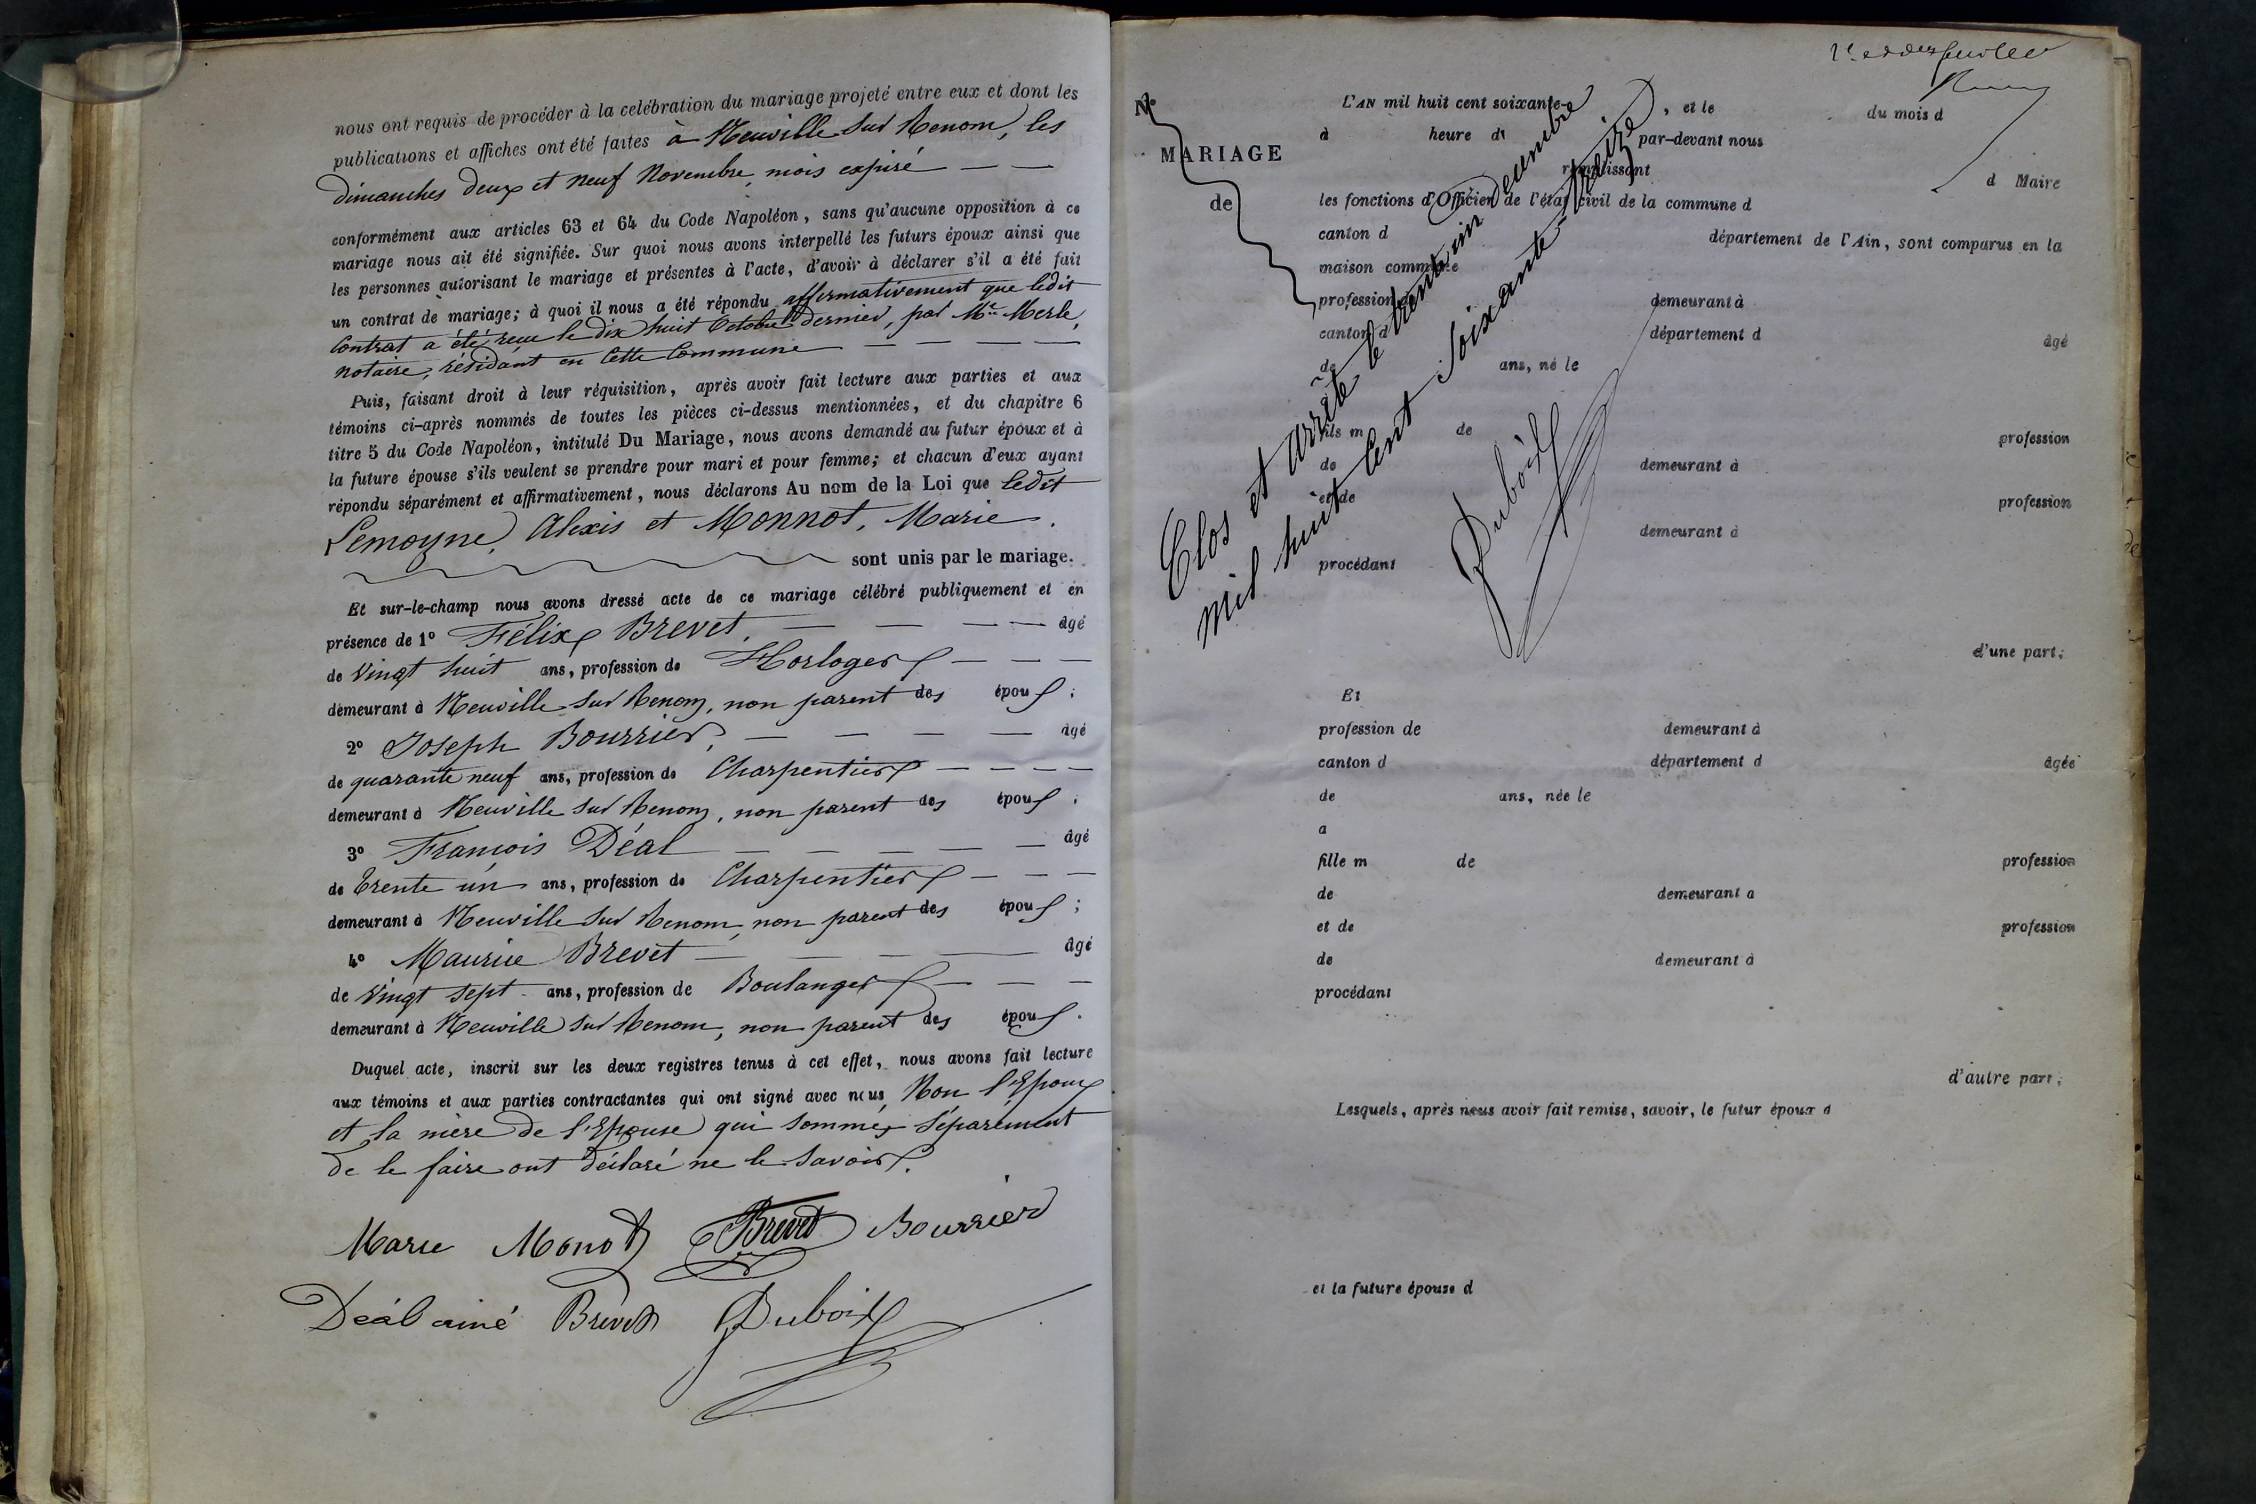 nous ont requis de procéder à la celébration du mariage projeté entre eux et dont les
publications et affiches ont été faites à Neuville sur Renom, les
dimanches deux et neuf Novembre, mois expiré
conformément aux articles 63 et 64 du Code Napoléon, sans qu'aucune opposition à ce
mariage nous ait été signifiée. Sur quoi nous avons interpellé les futurs époux ainsi que
les personnes autorisant le mariage et présentes à l'acte, d'avoir à déclarer s'il a été fait
un contrat de mariage; à quoi il nous a été répondu affirmativement que ledit
Contrat a été reçu le dix huit Octobre dernier, par Me Merle,
notaire, résidant en cette Commune
Puis, faisant droit à leur réquisition, après avoir fait lecture aux parties et aux
témoins ci-après nommés de toutes les pièces ci-dessus mentionnées, et du chapitre 6
titre 5 du Code Napoléon, intitulé Du Mariage, nous avons demandé au futur époux et à
la future épouse s'ils veulent se prendre pour mari et pour femme; et chacun d'eux ayant
répondu séparément et affirmativement, nous déclarons Au nom de la Loi que ledit
Lemoyne, Alexis et Monnot, Marie.
sont unis par le mariage.
Et sur-le-champ nous avons dressé acte de ce mariage célébré publiquement et en
présence de 1º Félix Brevet, âgé
de Vingt huit ans, profession de Horloger
demeurant à Neuville sur Renom, non parent des époux;
2º Joseph Bourrier, âgé
de quarante neuf ans, profession de Charpentier
demeurant à Neuville sur Renom, non parent des époux;
3º François Déal âgé
de Trente un ans, profession de Charpentier
demeurant à Neuville sur Renom, non parent des époux;
4º Maurice Brevet âgé
de Vingt sept ans, profession de Boulanger
demeurant à Neuville sur Renom, non parent des époux.
Duquel acte, inscrit sur les deux registres tenus à cet effet, nous avons fait lecture
aux témoins et aux parties contractantes qui ont signé avec nous, Non l'Epoux
et la mère de l'Epouse qui sommés séparément
de le faire ont déclaré ne le savoir.
Marie Monot Brevet Bourrier
Déal ainé Brevet Dubois
Nº
MARIAGE
de
L'AN mil huit cent soixante- , et le du mois d
à heure d par-devant nous
remplissant
d Maire
les fonctions d'Officier de l'état civil de la commune d
canton d département de l'Ain, sont comparus en la
maison commune
profession demeurant à
canton d département d âgé
de ans, né le
fils m de profession
de demeurant à
et de profession
demeurant à
procédant
Clos et arrêté le trente un Décembre
mil huit Cent Soixante-Treize
Dubois
d'une part;
Et
profession de demeurant à
canton d département d âgée
de ans, née le
a
fille m de profession
de demeurant a
et de profession
de demeurant à
procédant
d'autre part;
Lesquels, après nous avoir fait remise, savoir, le futur époux d
et la future épouse d